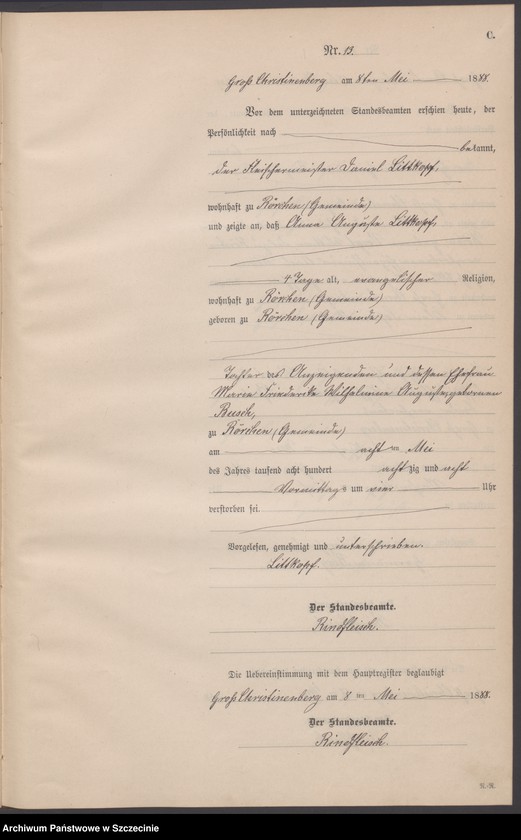 C.
Nr. 15.
Groß Christinenberg am 8ten Mei 1888.
Vor dem unterzeichneten Standesbeamten erschien heute, der
Persönlichkeit nach
bekannt,
der Fleischermeister Daniel Littkopf,
wohnhaft zu Rörchen (Gemeinde)
und zeigte an, daß Anna Auguste Littkopf,
4 Tage alt, evangelischer Religion,
wohnhaft zu Rörchen (Gemeinde)
geboren zu Rörchen (Gemeinde)
Tochter des Anzeigenden und dessen Ehefrau
Marie Friedericke Wilhelmine Auguste, geborenen
Rusch,
zu Rörchen (Gemeinde)
am acht ten Mei
des Jahres tausend acht hundert acht zig und acht
Vormittags um vier Uhr
verstorben sei.
Vorgelesen, genehmigt und unterschrieben.
Littkopf.
Der Standesbeamte.
Rindfleisch.
Die Uebereinstimmung mit dem Hauptregister beglaubigt
Groß Christinenberg am 8 ten Mei 1888.
Der Standesbeamte.
Rindfleisch.
R.-R.
Archiwum Państwowe w Szczecinie